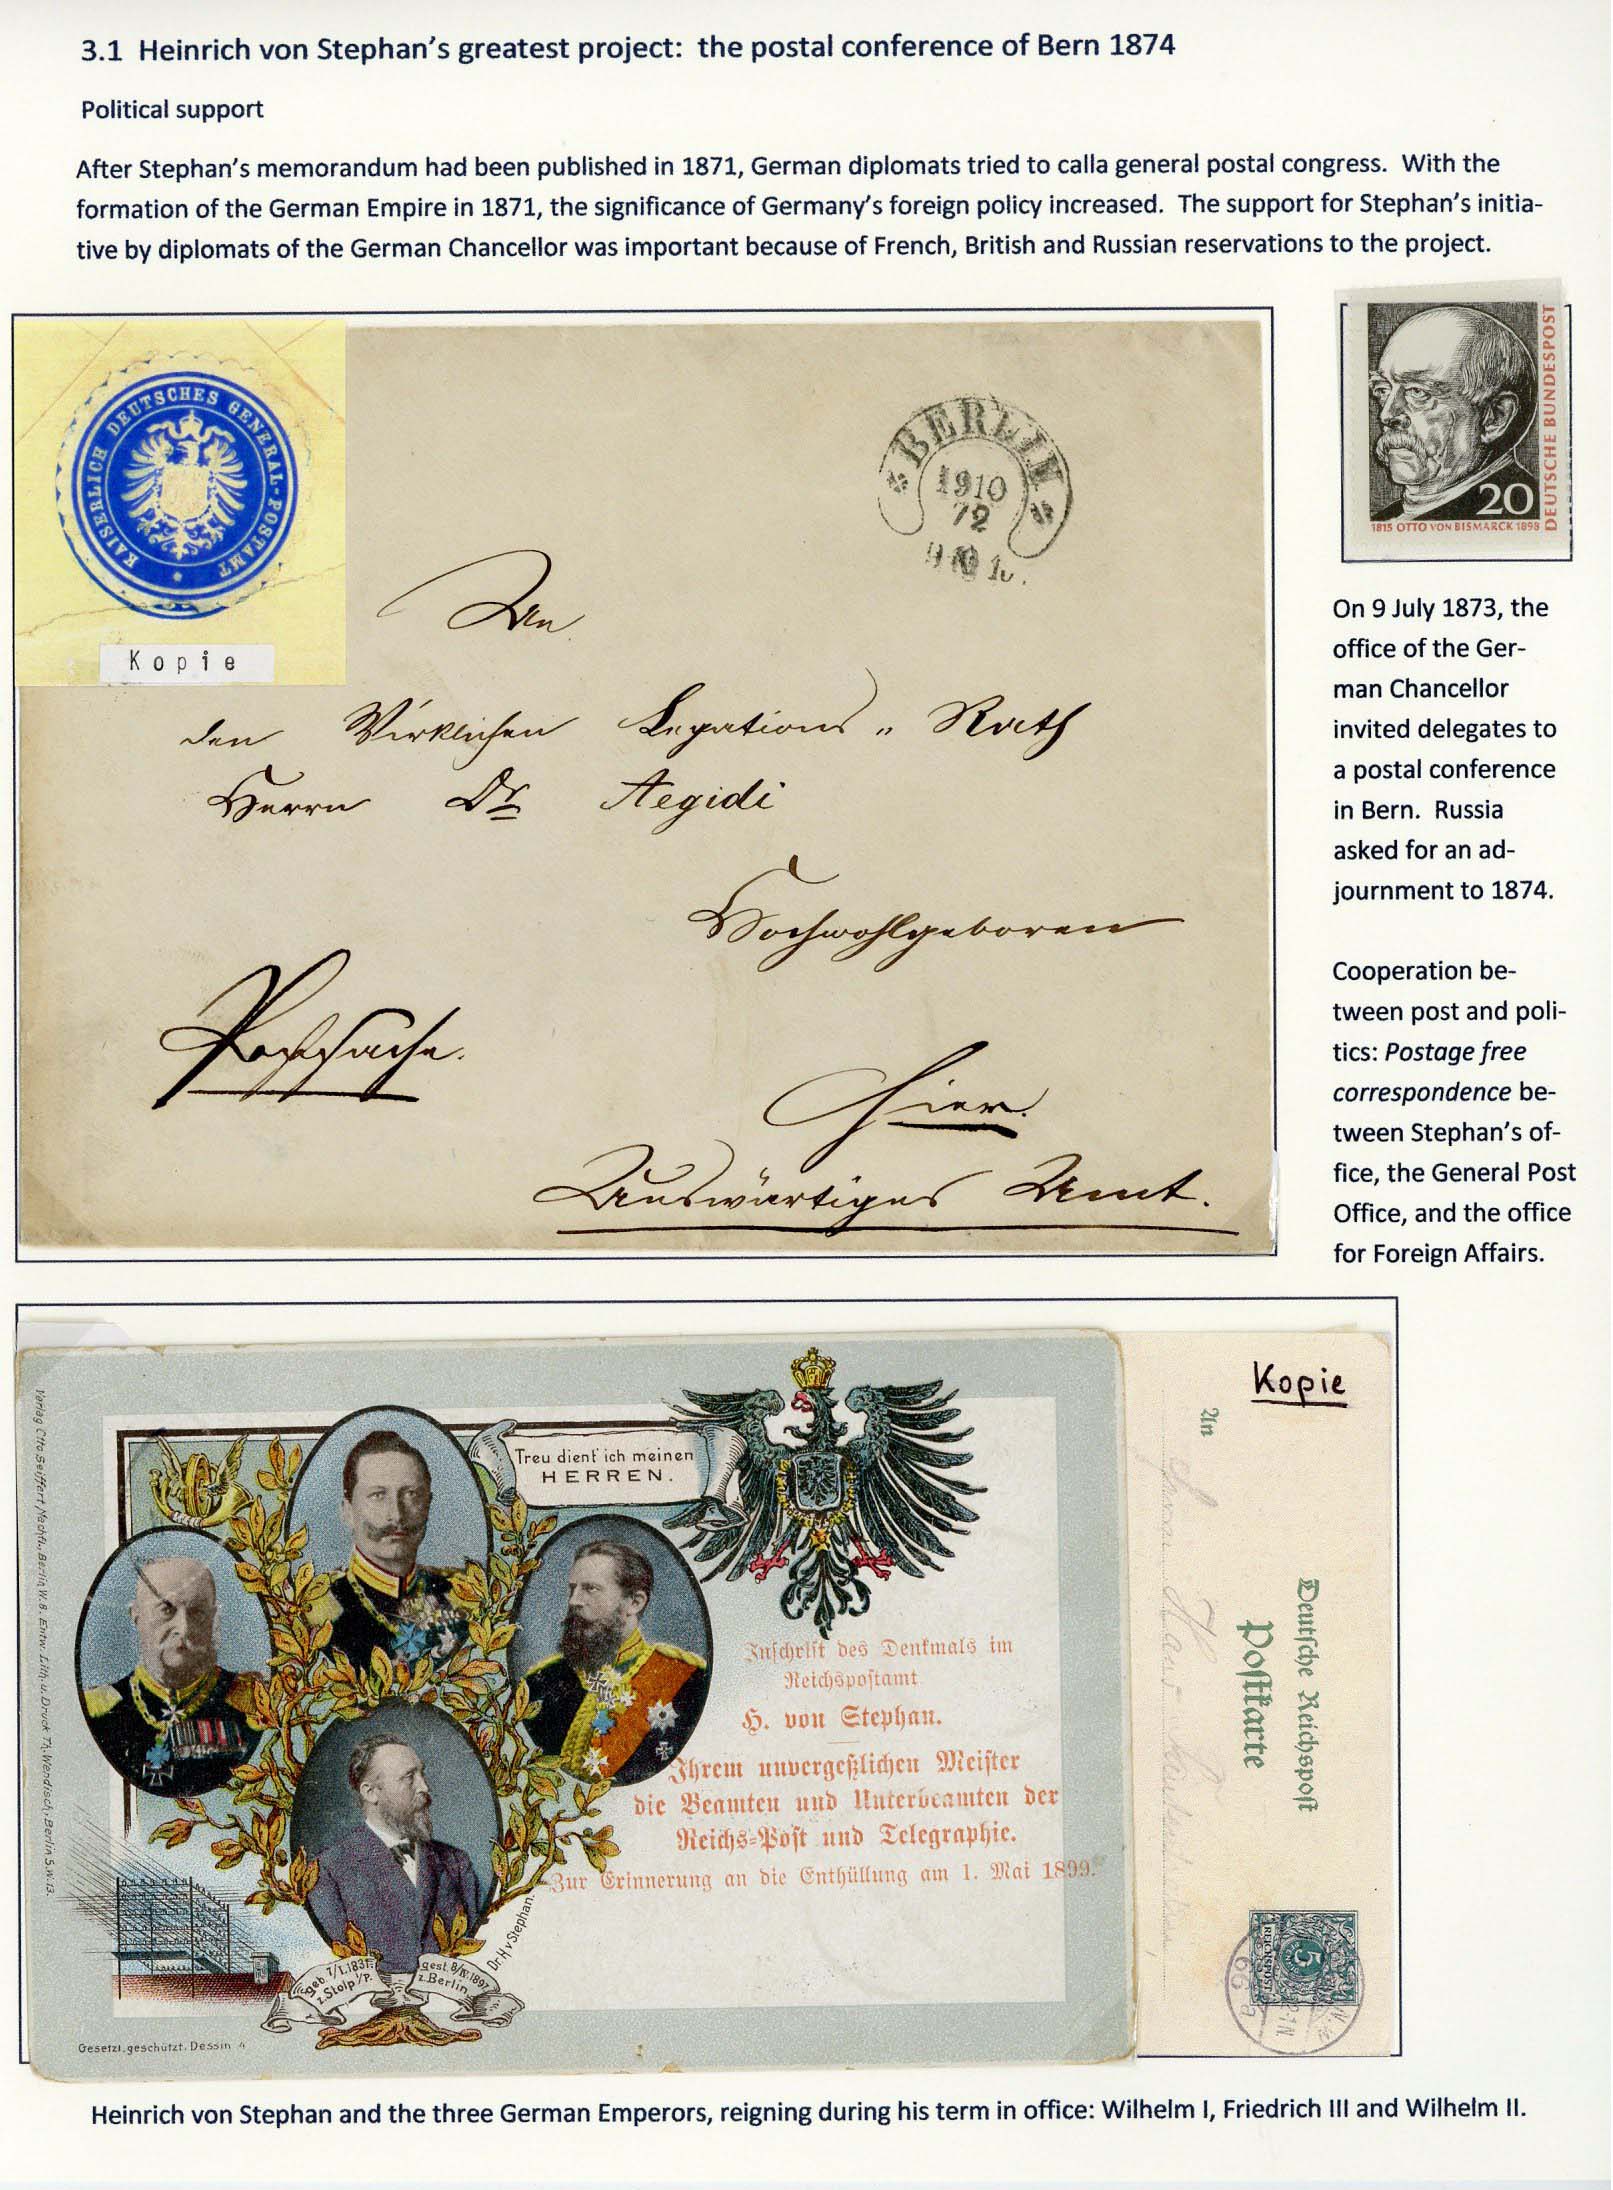 3.1 Heinrich von Stephan's greatest project: the postal conference of Bern 1874
Political support
After Stephan's memorandum had been published in 1871, German diplomats tried to calla general postal congress. With the
formation of the German Empire in 1871, the significance of Germany's foreign policy increased. The support for Stephan's initia-
tive by diplomats of the German Chancellor was important because of French, British and Russian reservations to the project.
KAISERLICH DEUTSCHES GENERAL-POSTAMT
Kopie
BERLIN
1910
72
An
den Wirklichen Legations-Rath
Herrn Dr Aegidi
Hochwohlgeboren
Postsache.
Hier.
Auswärtiges Amt.
20
DEUTSCHE BUNDESPOST
1815 OTTO VON BISMARCK 1898
On 9 July 1873, the
office of the Ger-
man Chancellor
invited delegates to
a postal conference
in Bern. Russia
asked for an ad-
journment to 1874.
Cooperation be-
tween post and poli-
tics: Postage free
correspondence be-
tween Stephan's of-
fice, the General Post
Office, and the office
for Foreign Affairs.
Verlag Otto Seiffert Nachfl., Berlin W.8. Entw. Lith. u. Druck Th. Wendisch, Berlin S.W.13.
Treu dient' ich meinen
HERREN.
Inschrift des Denkmals im
Reichspostamt
H. von Stephan.
Ihrem unvergeßlichen Meister
die Beamten und Unterbeamten der
Reichs-Post und Telegraphie.
Zur Erinnerung an die Enthüllung am 1. Mai 1899.
geb. 7/I. 1831.
z. Stolp i/P.
gest. 8/IV. 1897
z. Berlin
Dr. H. v Stephan.
Gesetzl. geschützt. Dessin 4
Kopie
An
Deutsche Reichspost
Postkarte
5
REICHSPOST
Heinrich von Stephan and the three German Emperors, reigning during his term in office: Wilhelm I, Friedrich III and Wilhelm II.